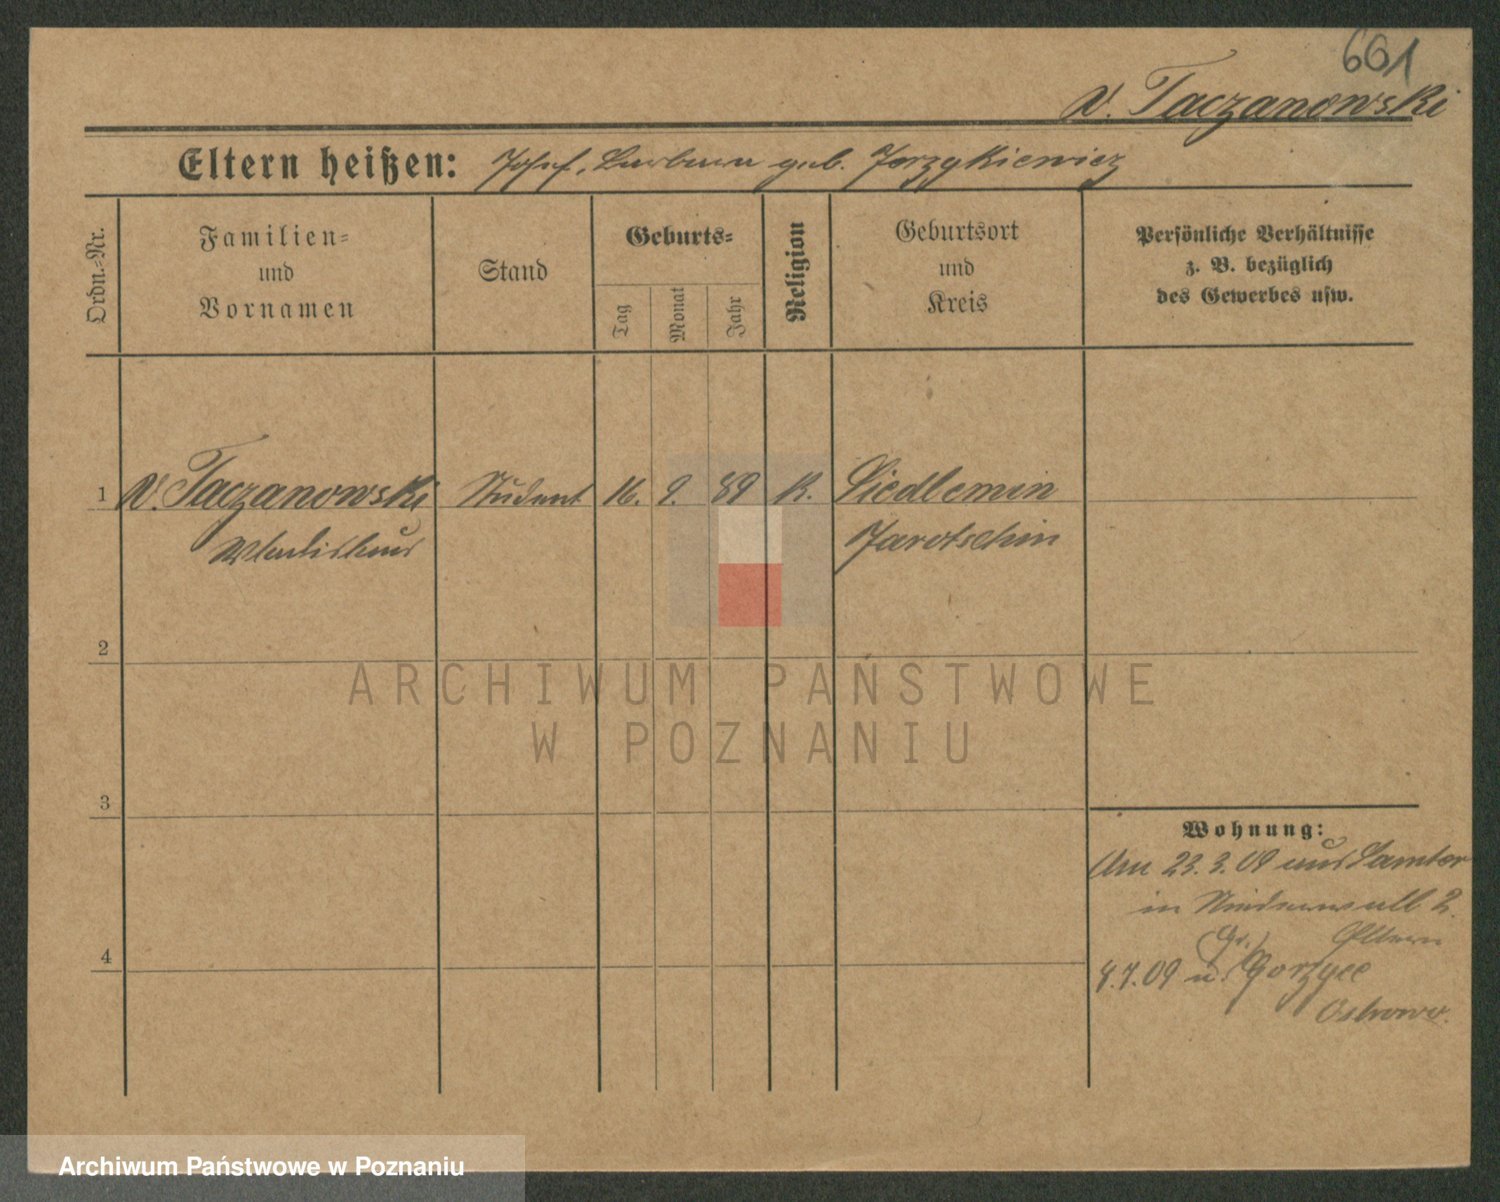 661
v. Taczanowski
Eltern heißen: Josef, Barbara geb. Jorzykiewicz
Ordn.-Nr.
Familien-
und
Vornamen
Stand
Geburts-
Tag
Monat
Jahr
Religion
Geburtsort
und
Kreis
Persönliche Verhältnisse
z. B. bezüglich
des Gewerbes usw.
1 v. Taczanowski Student 16. 9. 89 K. Siedlemin
Wladislaus Jarotschin
2
ARCHIWUM PAŃSTWOWE
W POZNANIU
3
Wohnung:
Am 23.3.09 aus Samter
in Niederwall 2.
(Gr.) Eltern
8.7.09 n. Gorzyce
Ostrowo.
4
Archiwum Państwowe w Poznaniu